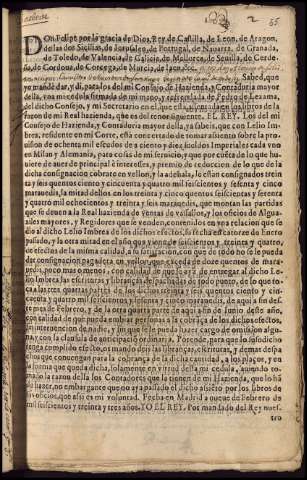 DOn Felipe por la gracia de Dios, Rey de Castilla, de Leon, de Aragon,
de las dos Sicilias, de Ierusalen, de Portugal, de Nauarra, de Granada,
de Toledo, de Valencia, de Galicia, de Mallorca, de Seuilla, de Cerdeña,
de Cordoua, de Corcega, de Murcia, de Iaen, &c.
Sabed, que
yo mandè dar, y di, para los del mi Consejo de Hazienda, y Contaduria mayor
della, vna mi cedula firmada de mi mano, y refrendada de Pedro de Lezama,
del dicho Consejo, y mi Secretario en el, que està assentada en los libros de la
razon de mi Real hazienda, que es del tenor siguiente. EL REY. Los del mi
Consejo de Hazienda, y Contaduria mayor della, ya sabeis, que con Lelio Imbrea,
residente en mi Corte, està concertado de tomar assiento sobre la prouision
de ochenta mil escudos de a ciento y diez sueldos Imperiales cada vno
en Milan y Alemania, para cosas de mi seruicio, y que por cuẽta de lo que huuiere
de auer de principal è intereses, y premio de reduccion de lo que de la
dicha consignacion cobrare en vellon, y la adehala, le estàn consignados treinta
y seis quentos ciento y cincuenta y quatro mil seiscientos y setenta y cinco
marauedis, la mitad dellos, en los treinta y cinco quentos seiscientos y setenta
y quatro mil ochocientos y treinta y seis marauedis, que montan las partidas
que se deuen a la Real hazienda de ventas de vassallos, y los oficios de Alguaziles
mayores, y Regidores que se venden, contenidos en vna relacion que se
dio al dicho Lelio Imbrea de los dichos efectos, su fecha en catorze de Enero
passado, y la otra mitad en el año que viene de seiscientos y treinta y quatro,
en efectos de la misma calidad, a su satisfacion, con que de todo no se le pueda
dar consignacion pagadera en vellon, que exceda de doze quentos de marauedis,
poco mas o menos, con calidad de que se le aya de entregar al dicho Lelio
Imbrea las escrituras y libranças despachadas de todo punto, de lo que toca
a las tres quartas partes de los dichos treinta y seis quentos ciento y cincuenta
y quatro mil seiscientos y setenta y cinco marauedis, de aqui a fin deste
mes de Febrero, y de la otra quarta parte de aqui a fin de Iunio deste año,
con calidad de que pueda embiar personas a la cobrança de los dichos efectos,
sin interuencion de nadie, y sin que se le pueda hazer cargo de omission alguna,
y con la clausula de anticipacion ordinaria. Y porende, para que lo susodicho
tenga cumplido efecto, os mando deis las libranças, escrituras, y demas despachos
que conuengan para la cobrança de la dicha cantidad, a los plaços, y en
la forma que queda dicha, lo qual cumplid en virtud desta mi cedula, auiendo tomado
la razon della los Contadores que la tienen de mi Hazienda, que lo hã
de hazer, no embargante que no aya passado el dicho assiento por los libros de
los oficios, que assi es mi voluntad. Fecha en Madrid a nueue de Febrero de
mil seiscientos y treinta y tres años. YO EL REY. Por mandado del Rey nuestro